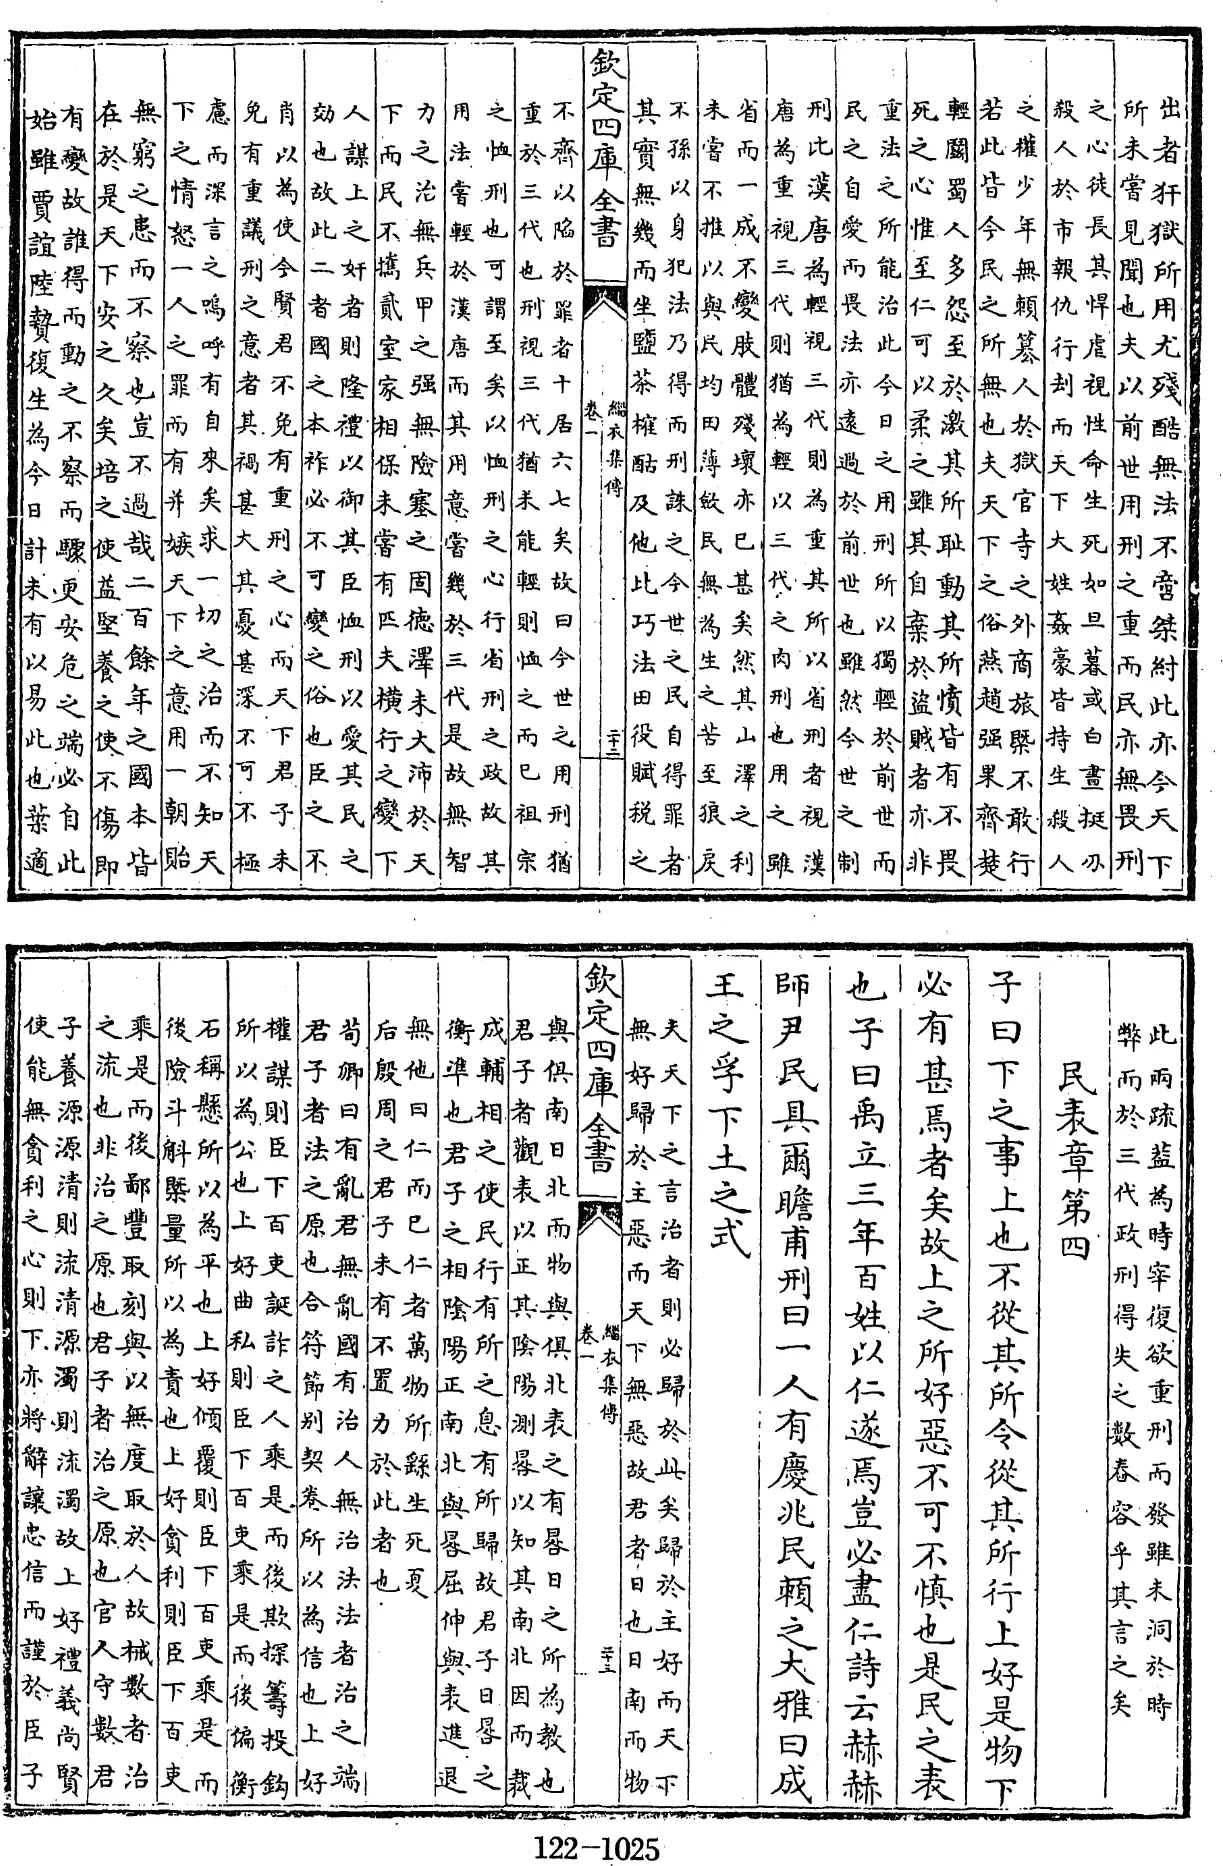 出者犴獄所用尤殘酷無法不啻桀紂此亦今天下
所未嘗見聞也夫以前世用刑之重而民亦無畏刑
之心徒長其悍虐視性命生死如旦暮或白晝挺刃
殺人於市報仇行刦而天下大姓姦豪皆持生殺人
之權少年無賴篡人於獄官寺之外商旅槩不敢行
若此皆今民之所無也夫天下之俗燕趙强果齊楚
輕關蜀人多怨至於激其所耻動其所憤皆有不畏
死之心惟至仁可以柔之雖其自棄於盜賊者亦非
重法之所能治此今日之用刑所以獨輕於前世而
民之自愛而畏法亦遠過於前世也雖然今世之制
刑比漢唐為輕視三代則為重其所以省刑者視漢
唐為重視三代則猶為輕以三代之肉刑也用之雖
省而一成不變肢體殘壞亦已甚矣然其山澤之利
未嘗不推以與民均田薄斂民無為生之苦至狼戾
不孫以身犯法乃得而刑誅之今世之民自得罪者
其實無幾而坐鹽茶榷酤及他比巧法田役賦稅之
欽定四庫全書
緇衣集傳
卷一
二十二
不齊以陷於罪者十居六七矣故曰今世之用刑猶
重於三代也刑視三代猶未能輕則恤之而已祖宗
之恤刑也可謂至矣以恤刑之心行省刑之政故其
用法嘗輕於漢唐而其用意嘗幾於三代是故無智
力之治無兵甲之强無險塞之固德澤未大沛於天
下而民不攜貳室家相保未嘗有匹夫橫行之變下
人謀上之奸者則隆禮以御其臣恤刑以愛其民之
効也故此二者國之本祚必不可變之俗也臣之不
肖以為使今賢君不免有重刑之心而天下君子未
免有重議刑之意者其禍甚大其憂甚深不可不極
慮而深言之嗚呼有自來矣求一切之治而不知天
下之情怒一人之罪而有并嫉天下之意用一朝貽
無窮之患而不察也豈不過哉二百餘年之國本皆
在於是天下安之久矣培之使益堅養之使不傷即
有變故誰得而動之不察而驟更安危之端必自此
始雖賈誼陸贄復生為今日計未有以易此也葉適
此兩疏葢為時宰復欲重刑而發雖未洞於時
弊而於三代政刑得失之數舂容乎其言之矣
民表章第四
子曰下之事上也不從其所令從其所行上好是物下
必有甚焉者矣故上之所好惡不可不慎也是民之表
也子曰禹立三年百姓以仁遂焉豈必盡仁詩云赫赫
師尹民具爾瞻甫刑曰一人有慶兆民賴之大雅曰成
王之孚下土之式
夫天下之言治者則必歸於此矣歸於主好而天下
無好歸於主惡而天下無惡故君者日也日南而物
欽定四庫全書
緇衣集傳
卷一
二十三
與俱南日北而物與俱北表之有晷日之所為教也
君子者觀表以正其陰陽測晷以知其南北因而裁
成輔相之使民行有所之息有所歸故君子日晷之
衡準也君子之相陰陽正南北與晷屈伸與表進退
無他曰仁而已仁者萬物所繇生死夏
后殷周之君子未有不置力於此者也
荀卿曰有亂君無亂國有治人無治法法者治之端
君子者法之原也合符節别契券所以為信也上好
權謀則臣下百吏誕詐之人乘是而後欺探籌投鈎
所以為公也上好曲私則臣下百吏乘是而後偏衡
石稱懸所以為平也上好傾覆則臣下百吏乘是而
後險斗斛槩量所以為責也上好貪利則臣下百吏
乘是而後鄙豐取刻與以無度取於人故械數者治
之流也非治之原也君子者治之原也官人守數君
子養源源清則流清源濁則流濁故上好禮義尚賢
使能無貪利之心則下亦將辭讓忠信而謹於臣子
122-1025